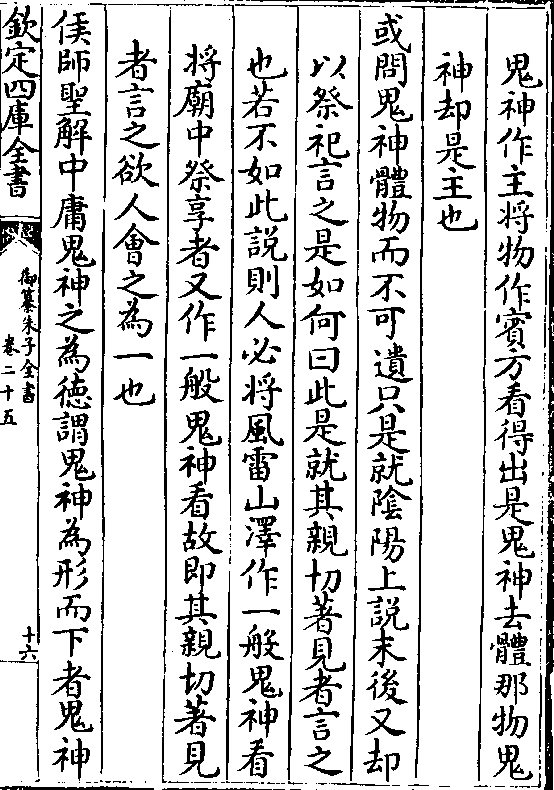 鬼神作主將物作賓方看得出是鬼神去體那物鬼
神却是主也
或問鬼神體物而不可遺只是就陰陽上説末後又却
以祭祀言之是如何曰此是就其親切著見者言之
也若不如此説則人必將風雷山澤作一般鬼神看
將廟中祭享者又作一般鬼神看故即其親切著見
者言之欲人會之為一也
侯師聖解中庸鬼神之為徳謂鬼神為形而下者鬼神
欽定四庫全書
御纂朱子全書
卷二十五
十六